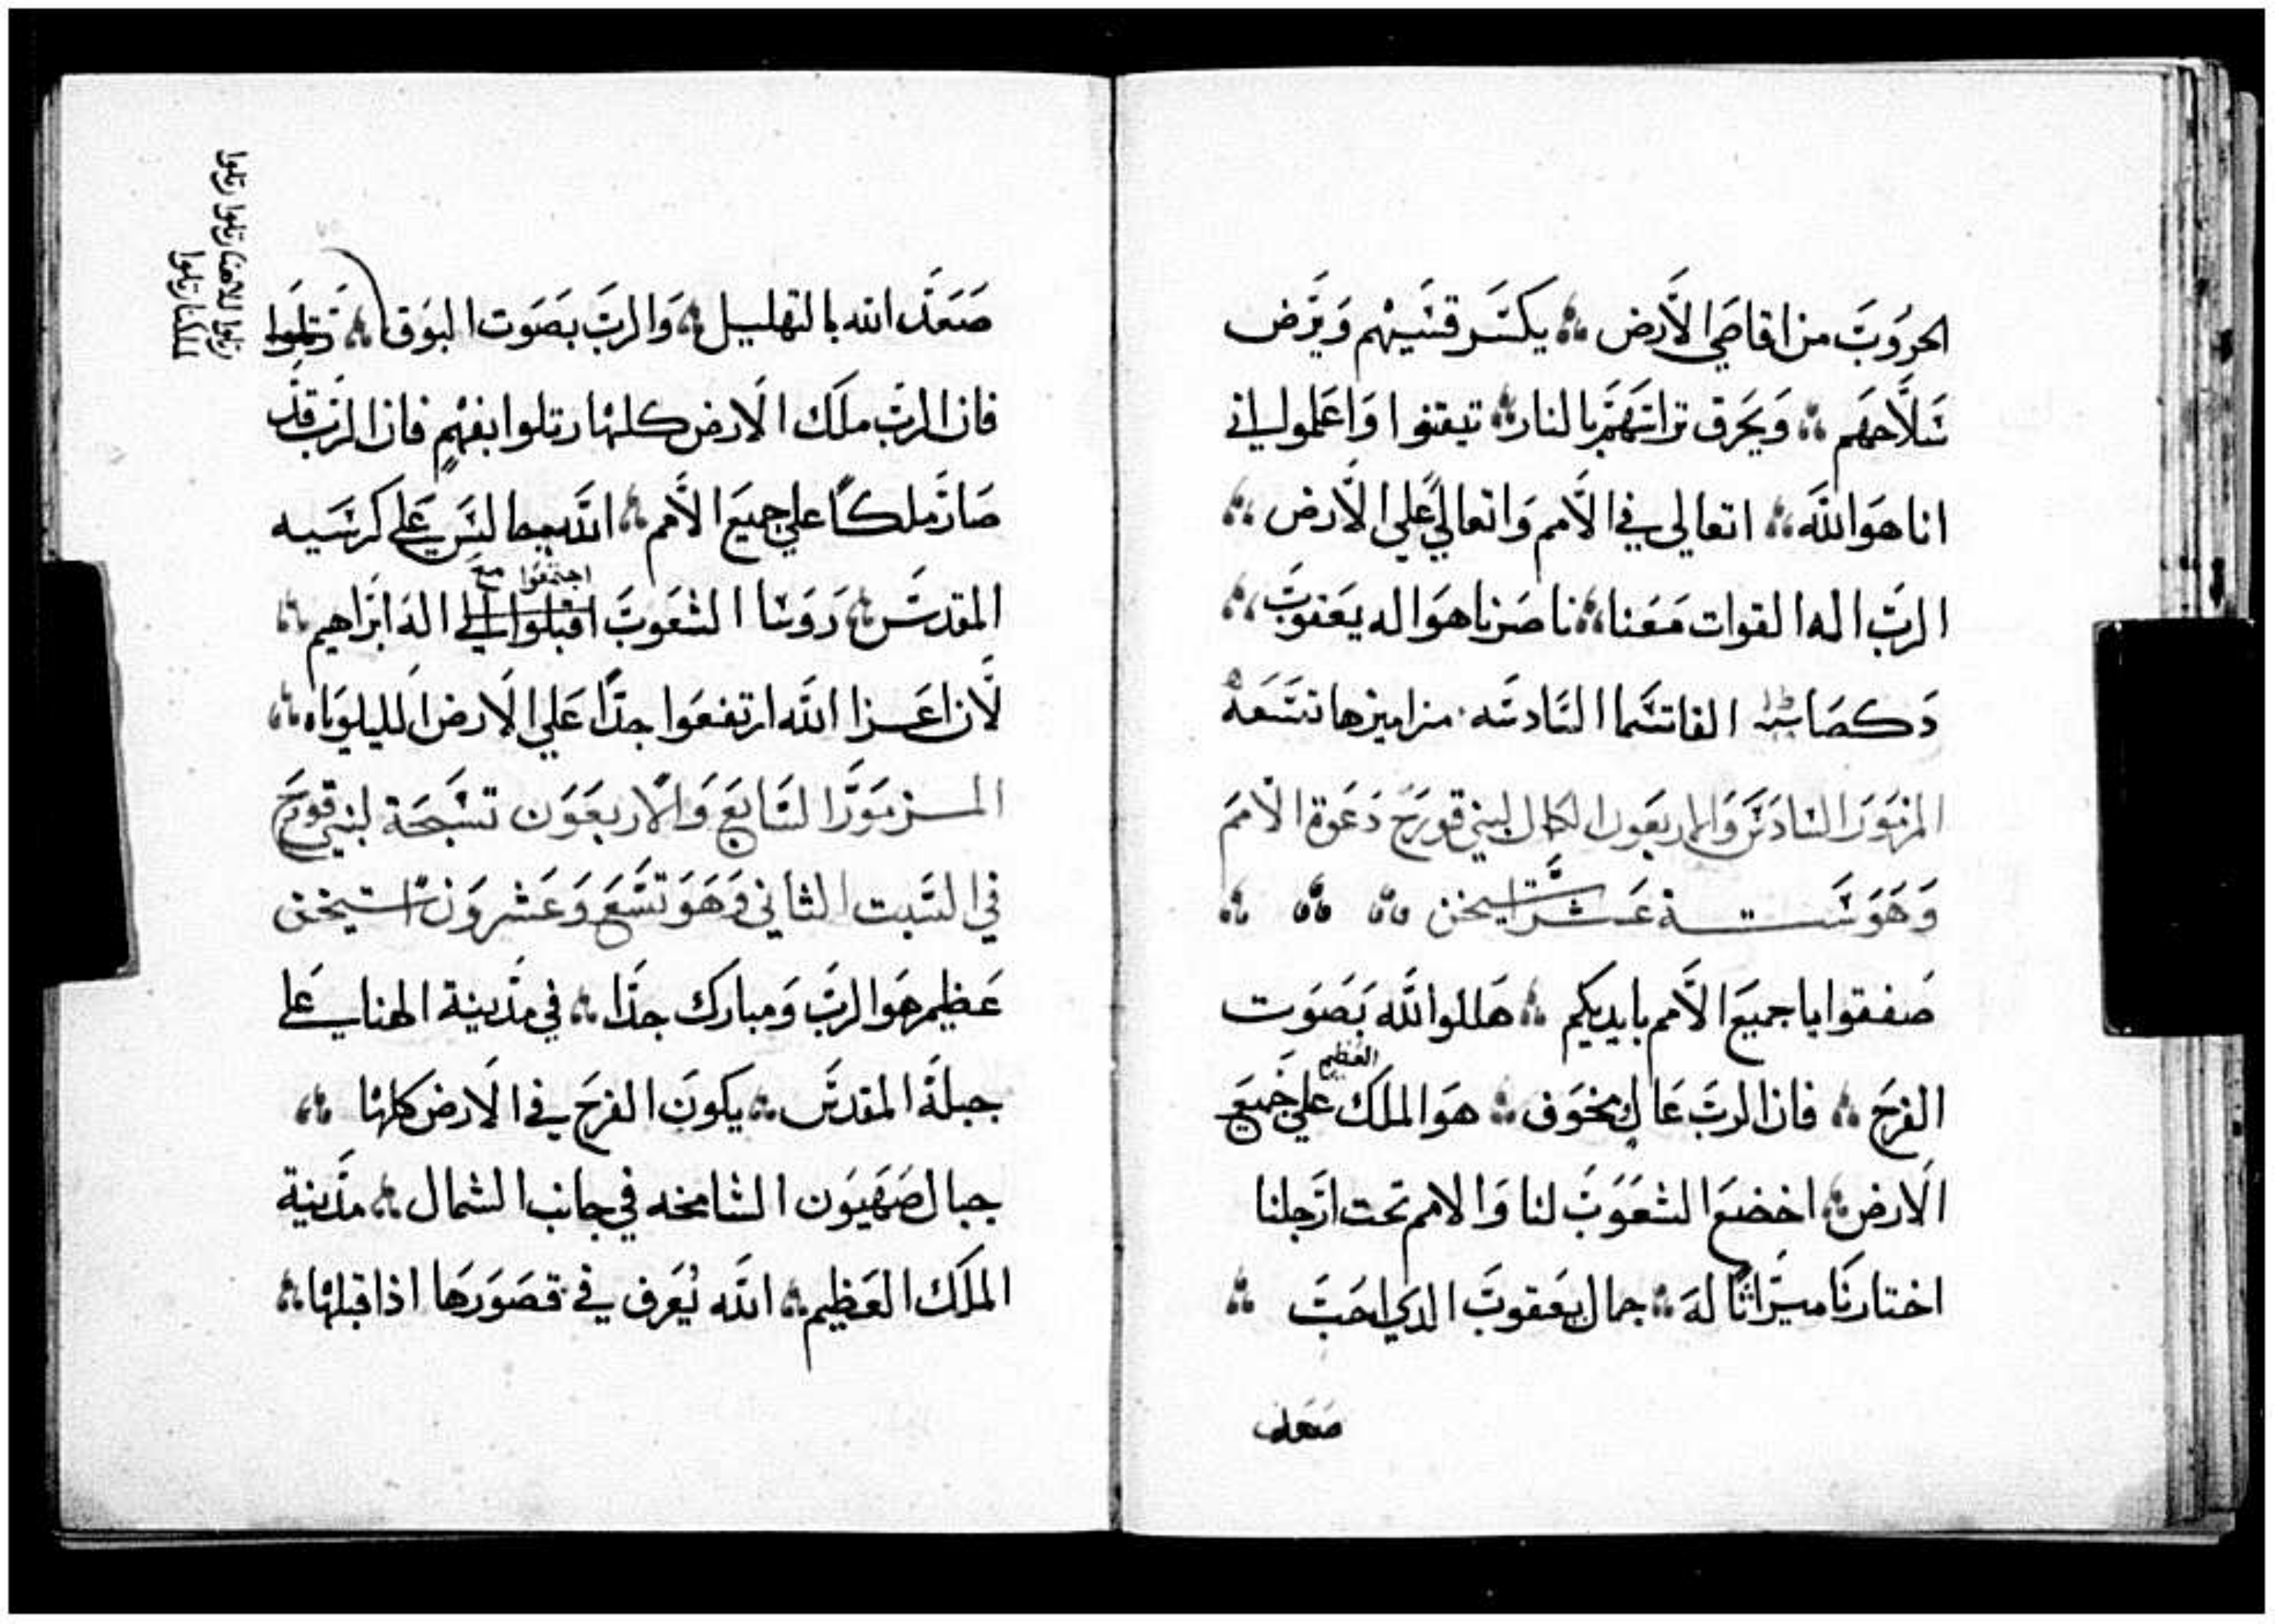 الحروب من اقاصي الارض يكسر قسيهم ويرض
سلاحهم ويحرق تراستهم بالنار تيقنوا واعلموا اني
انا هو الله اتعالي في الامم واتعالي علي الارض
الرب اله القوات معنا ناصرنا هو اله يعقوب
دكصا الفاتسما السادسه مزاميرها تسعة
المزمور السادس والاربعون لكمال لبني قورح دعوة الامم
وهو ستة عشر استيخن
صفقوا يا جميع الامم بايديكم هللوا لله بصوت
العظيم
الفرح فان الرب عال مخوف هو الملك علي جميع
الارض اخضع الشعوب لنا والامم تحت ارجلنا
اختارنا ميراثا له جمال يعقوب الدي احب
صعد
صعد الله بالتهليل والرب بصوت البوق رتلوا
رتلوا للاهنا رتلوا رتلوا
لملكنا رتلوا
فان الرب ملك الارض كلها رتلوا بفهم فان الرب قد
صار ملكا علي جميع الامم الله جالس علي كرسيه
اجتمعوا مع
المقدس روسا الشعوب اقبلوا الي اله ابراهيم
لان اعزا الله ارتفعوا جدا علي الارض الليلوياه
المزمور السابع والاربعون تسبحة لبني قورح
في السبت الثاني وهو تسع وعشرون استيخن
عظيم هو الرب ومبارك جدا في مدينة الهنا علي
جبله المقدس يكون الفرح في الارض كلها
جبال صهيون الشامخه في جانب الشمال مدينة
الملك العظيم الله يعرف في قصورها اذا قبلها